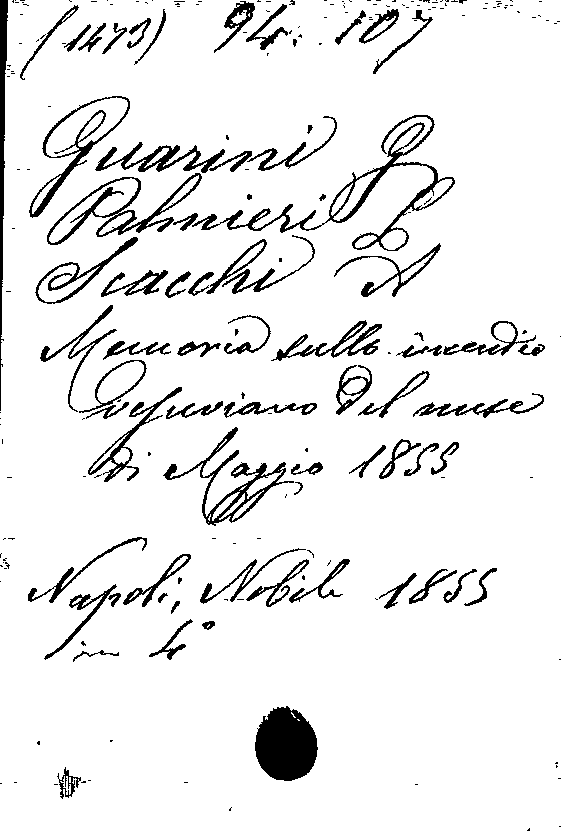 (1473) 94. 107
Guarini G
Palmieri L
Scacchi A
Memoria sullo incendio
vesuviano del mese
di Maggio 1855
Napoli, Nobile 1855
in 4°